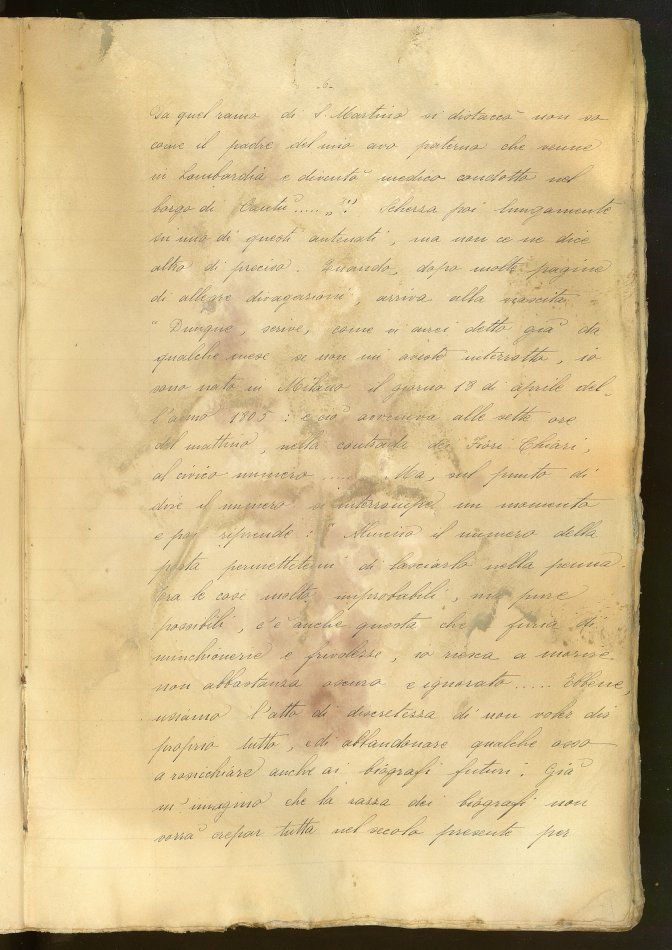 -6-
da quel ramo di S. Martino si distaccò non so
come il padre del mio avo paterno che venne
in Lombardia e diventò medico condotto nel
borgo di Cantù.....„". Scherza poi lungamente
su uno di questi antenati, ma non ce ne dice
altro di preciso. Quando, dopo molte pagine
di allegre divagazioni, arriva alla nascita,
"Dunque, scrive, come vi avrei detto già da
qualche mese se non mi aveste interrotto, io
sono nato in Milano il giorno 18 di aprile del-
l'anno 1805: e ciò avveniva alle sette ore
del mattino, nella contrada dei Fiori Chiari,
al civico numero ..... Ma, sul punto di
dire il numero si interrompe un momento
e poi riprende: " il numero della
porta permettetemi di lasciarlo nella penna.
Fra le cose molto improbabili, ma pure
possibili, c'è anche questa che a furia di
minchionerie e frivolezze, io riesca a morire
non abbastanza oscuro e ignorato..... Ebbene,
usiamo l'atto di discretezza di non voler dir
proprio tutto, e di abbandonare qualche osso
a rosicchiare anche ai biografi futuri. Già
m'immagino che la razza dei biografi non
vorrà crepar tutta nel secolo presente per